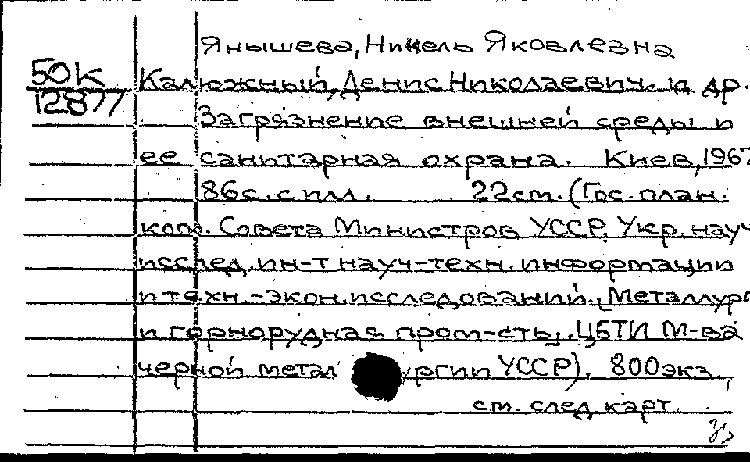 Янышева, Нинель Яковлевна
50К
12877
Калюжный, Денис Николаевич. и др.
Загрязнение внешней среды и
ее санитарная охрана. Киев, 1967
86с. с илл. 22см. (Гос. план.
ком. Совета Министров УССР. Укр. науч
исслед. ин-т науч-техн. информации
и техн.-экон. исследований. [Металлург
и горнорудная пром-сть]. ЦБТИ М-ва
черной метал ургии УССР). 800экз.,
см. след. карт.